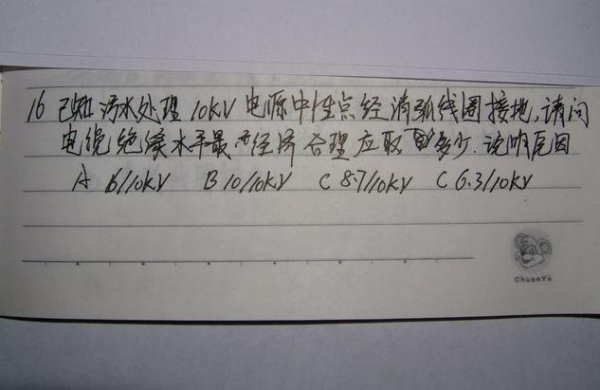 16 已知污水处理10kV电源中性点经消弧线圈接地,请问
电缆绝缘水平最经济合理应取多少.说明原因
A 6/10kV B 10/10kV C 8.7/10kV C 6.3/10kV
ChuanYe